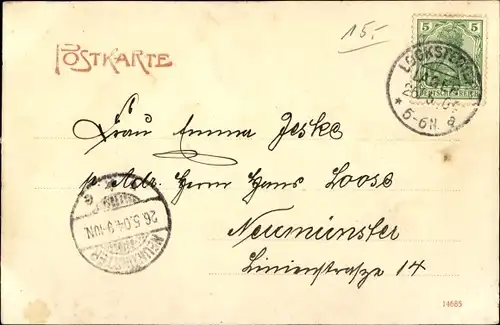 15.-
POSTKARTE
5 5
DEUTSCHES REICH
LOCKSTEDTER
LAGER
5-6N.
Frau Emma Jeske
p. Adr. Herrn Hans Loose
Neumünster
Linienstrasze 14
26.5.04. 9-10N.
NEUMÜNSTER
14685